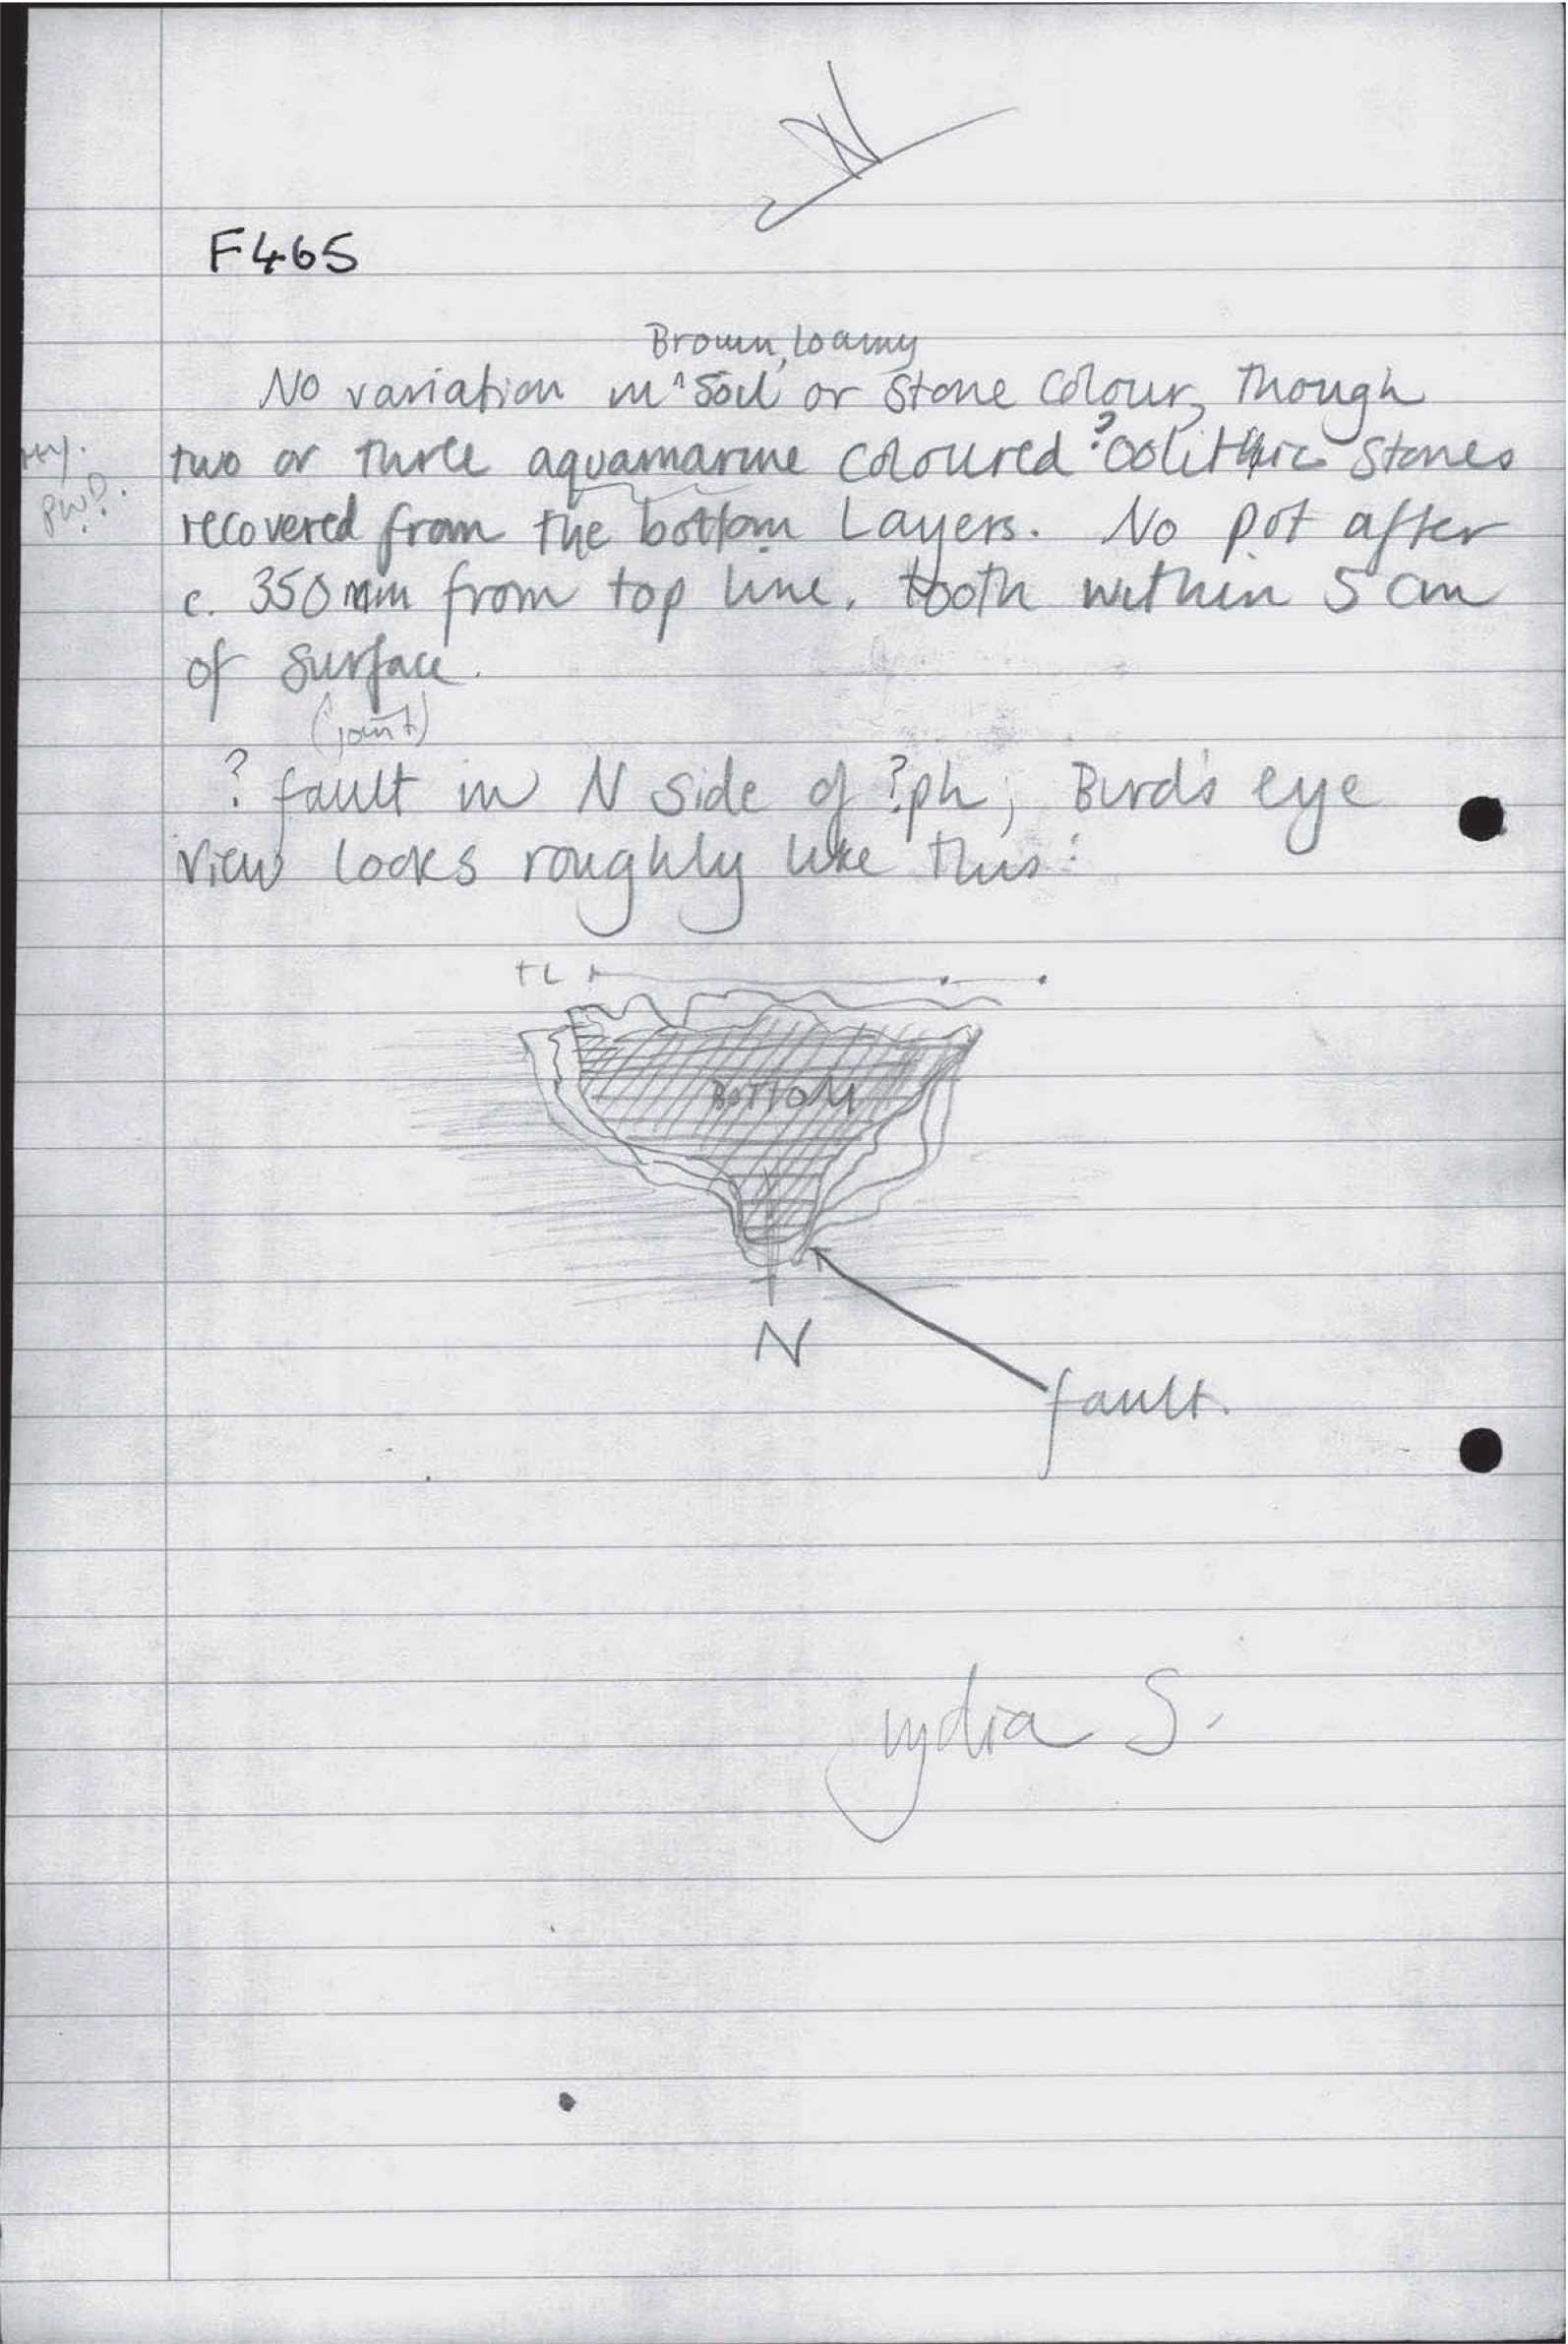 N
F465
Brown, Loamy
No variation in ^ soil or stone colour, though
two or three aquamarine coloured ?oolithic stones
PWP.
recovered from the bottom Layers. No pot after
c. 350mm from top line. tooth within 5 cm
of surface.
(joint)
? fault in N side of ?ph; Bird's eye
view looks roughly like this:
TL
BOTTOM
N
fault.
Lydia S.